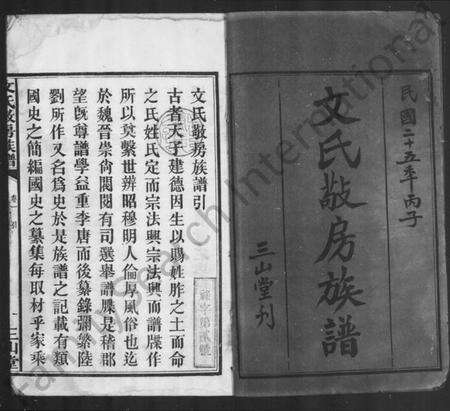 民國二十五年丙子
文氏敬房族譜
三山堂刊
文氏敬房族譜引
古者天子建德因生以賜姓胙之土而命
之氏姓氏定而宗法興宗法興而譜牒作
所以奠繫世辨昭穆明人倫厚風俗也迄
於魏晉崇尙閥閱有司選舉譜牒是稽郡
望旣尊譜學益重李唐而後纂錄彌繁陸
劉所作又名爲史於是族譜之記載有類
國史之簡編國史之纂集每取材乎家乘
文氏敬房族譜
三山堂
FamilySearch International